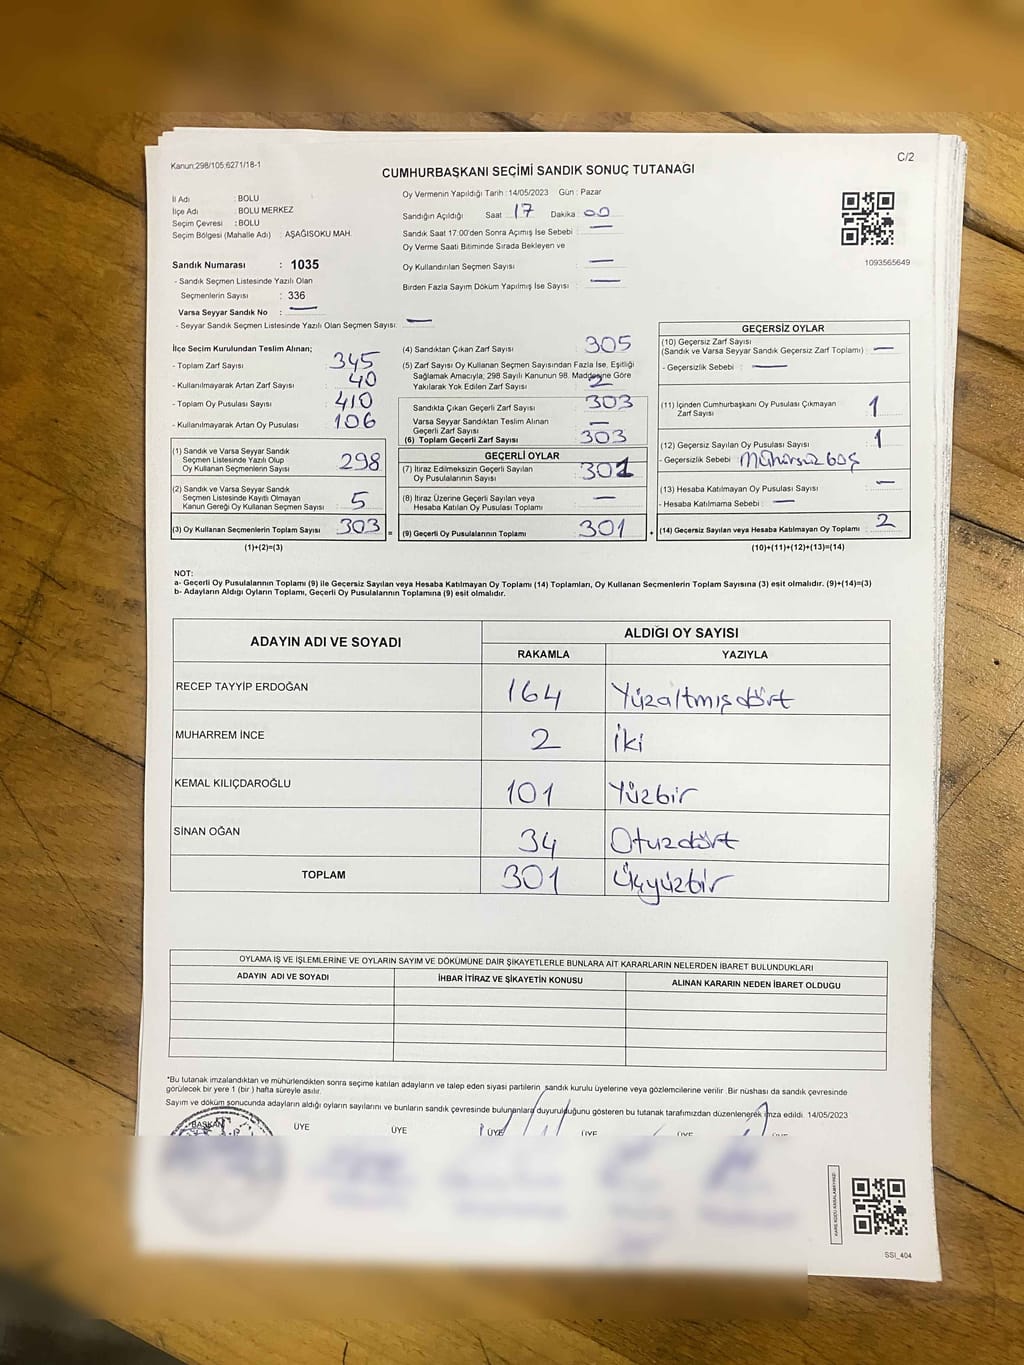 Kanun:298/105;6271/18-1
C/2
CUMHURBAŞKANI SEÇİMİ SANDIK SONUÇ TUTANAĞI
İl Adı : BOLU
İlçe Adı : BOLU MERKEZ
Seçim Çevresi : BOLU
Seçim Bölgesi (Mahalle Adı) : AŞAĞISOKU MAH.
Sandık Numarası : 1035
- Sandık Seçmen Listesinde Yazılı Olan
Seçmenlerin Sayısı : 336
Varsa Seyyar Sandık No : —
- Seyyar Sandık Seçmen Listesinde Yazılı Olan Seçmen Sayısı: —
Oy Vermenin Yapıldığı Tarih : 14/05/2023 Gün : Pazar
Sandığın Açıldığı Saat 17 Dakika : 00
Sandık Saat 17:00'den Sonra Açımış İse Sebebi : —
Oy Verme Saati Bitiminde Sırada Bekleyen ve
Oy Kullandırılan Seçmen Sayısı : —
Birden Fazla Sayım Döküm Yapılmış İse Sayısı : —
1093565649
İlçe Secim Kurulundan Teslim Alınan;
- Toplam Zarf Sayısı 345
- Kullanılmayarak Artan Zarf Sayısı 40
- Toplam Oy Pusulası Sayısı 410
- Kullanılmayarak Artan Oy Pusulası 106
(1) Sandık ve Varsa Seyyar Sandık
Seçmen Listesinde Yazılı Olup
Oy Kullanan Seçmenlerin Sayısı 298
(2) Sandık ve Varsa Seyyar Sandık
Seçmen Listesinde Kayıtlı Olmayan
Kanun Gereği Oy Kullanan Seçmen Sayısı 5
(3) Oy Kullanan Seçmenlerin Toplam Sayısı 303 =
(1)+(2)=(3)
(4) Sandıktan Çıkan Zarf Sayısı 305
(5) Zarf Sayısı Oy Kullanan Seçmen Sayısından Fazla İse, Eşitliği
Sağlamak Amacıyla; 298 Sayılı Kanunun 98. Maddesine Göre
Yakılarak Yok Edilen Zarf Sayısı 2
Sandıkta Çıkan Geçerli Zarf Sayısı 303
Varsa Seyyar Sandıktan Teslim Alınan
Geçerli Zarf Sayısı —
(6) Toplam Geçerli Zarf Sayısı 303
GEÇERLİ OYLAR
(7) İtiraz Edilmeksizin Geçerli Sayılan
Oy Pusulalarının Sayısı 301
(8) İtiraz Üzerine Geçerli Sayılan veya
Hesaba Katılan Oy Pusulası Toplamı —
(9) Geçerli Oy Pusulalarının Toplamı 301 +
GEÇERSİZ OYLAR
(10) Geçersiz Zarf Sayısı
(Sandık ve Varsa Seyyar Sandık Geçersiz Zarf Toplamı) —
- Geçersizlik Sebebi : —
(11) İçinden Cumhurbaşkanı Oy Pusulası Çıkmayan
Zarf Sayısı 1
(12) Geçersiz Sayılan Oy Pusulası Sayısı 1
- Geçersizlik Sebebi : Mühürsüz boş
(13) Hesaba Katılmayan Oy Pusulası Sayısı —
- Hesaba Katılmama Sebebi : —
(14) Geçersiz Sayılan veya Hesaba Katılmayan Oy Toplamı 2
(10)+(11)+(12)+(13)=(14)
NOT:
a- Geçerli Oy Pusulalarının Toplamı (9) ile Geçersiz Sayılan veya Hesaba Katılmayan Oy Toplamı (14) Toplamları, Oy Kullanan Seçmenlerin Toplam Sayısına (3) eşit olmalıdır. (9)+(14)=(3)
b- Adayların Aldığı Oyların Toplamı, Geçerli Oy Pusulalarının Toplamına (9) eşit olmalıdır.
ADAYIN ADI VE SOYADI ALDIĞI OY SAYISI
RAKAMLA YAZIYLA
RECEP TAYYİP ERDOĞAN 164 Yüzaltmışdört
MUHARREM İNCE 2 İki
KEMAL KILIÇDAROĞLU 101 Yüzbir
SİNAN OĞAN 34 Otuzdört
TOPLAM 301 Üçyüzbir
OYLAMA İŞ VE İŞLEMLERİNE VE OYLARIN SAYIM VE DÖKÜMÜNE DAİR ŞİKAYETLERLE BUNLARA AİT KARARLARIN NELERDEN İBARET BULUNDUKLARI
ADAYIN ADI VE SOYADI İHBAR İTİRAZ VE ŞİKAYETİN KONUSU ALINAN KARARIN NEDEN İBARET OLDUGU
*Bu tutanak imzalandıktan ve mühürlendikten sonra seçime katılan adayların ve talep eden siyasi partilerin sandık kurulu üyelerine veya gözlemcilerine verilir. Bir nüshası da sandık çevresinde
görülecek bir yere 1 (bir ) hafta süreyle asılır.
Sayım ve döküm sonucunda adayların aldığı oyların sayılarını ve bunların sandık çevresinde bulunanlara duyurulduğunu gösteren bu tutanak tarafımızdan düzenlenerek imza edildi. 14/05/2023
BAŞKAN ÜYE ÜYE ÜYE ÜYE ÜYE ÜYE
SSI_404